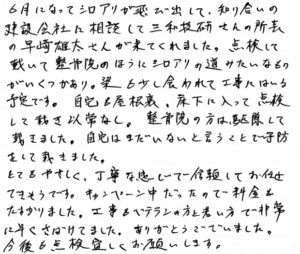 6月になってシロアリが飛び出して、知り合いの
建設会社に相談して三和技研さんの所長
の早崎雄大さんが来てくれました。点検して
戴いて整骨院のほうにシロアリの道みたいなもの
がいくつかあり。梁も少し食われて工事にはいる
予定です。自宅も屋根裏、床下に入って点検
して頂き以常なし。整骨院の方は駆除して
戴きました。自宅はまだいないと言うことで予防
をして戴きました。
とてもやさしく、丁寧な感じで信頼してお任せ
できそうです。キャンペーン中だったので料金も
たすかりました。工事もベテランの方と若い方で非常
に早くさばけてました。ありがとうございました。
今後も点検宜しくお願いします。